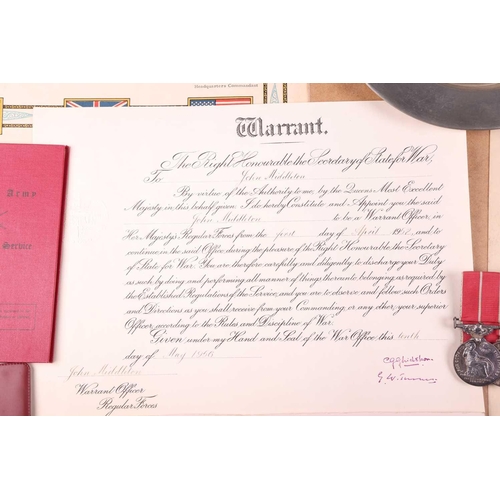 Headquarters Commandant
Warrant.
The Right Honourable the Secretary of State for War,
To John Middleton
By virtue of the Authority to me, by the Queens Most Excellent
Majesty, in this behalf given I do hereby Constitute and Appoint you the said
John Middleton to be a Warrant Officer in
Her Majesty's Regular Forces from the first day of April and to
continue in the said Office during the pleasure of the Right Honourable the Secretary
of State for War. You are therefore carefully and diligently to discharge your Duty
as such by doing and performing all manner of things thereunto belonging, as required by
the Established Regulations of the Service, and you are to observe and follow such Orders
and Directions as you shall receive from your Commanding, or any other, your superior
Officer, according to the Rules and Discipline of War.
Given under my Hand and Seal of the War Office this tenth
day of May
John Middleton
Warrant Officer
Regular Forces
Army
Service